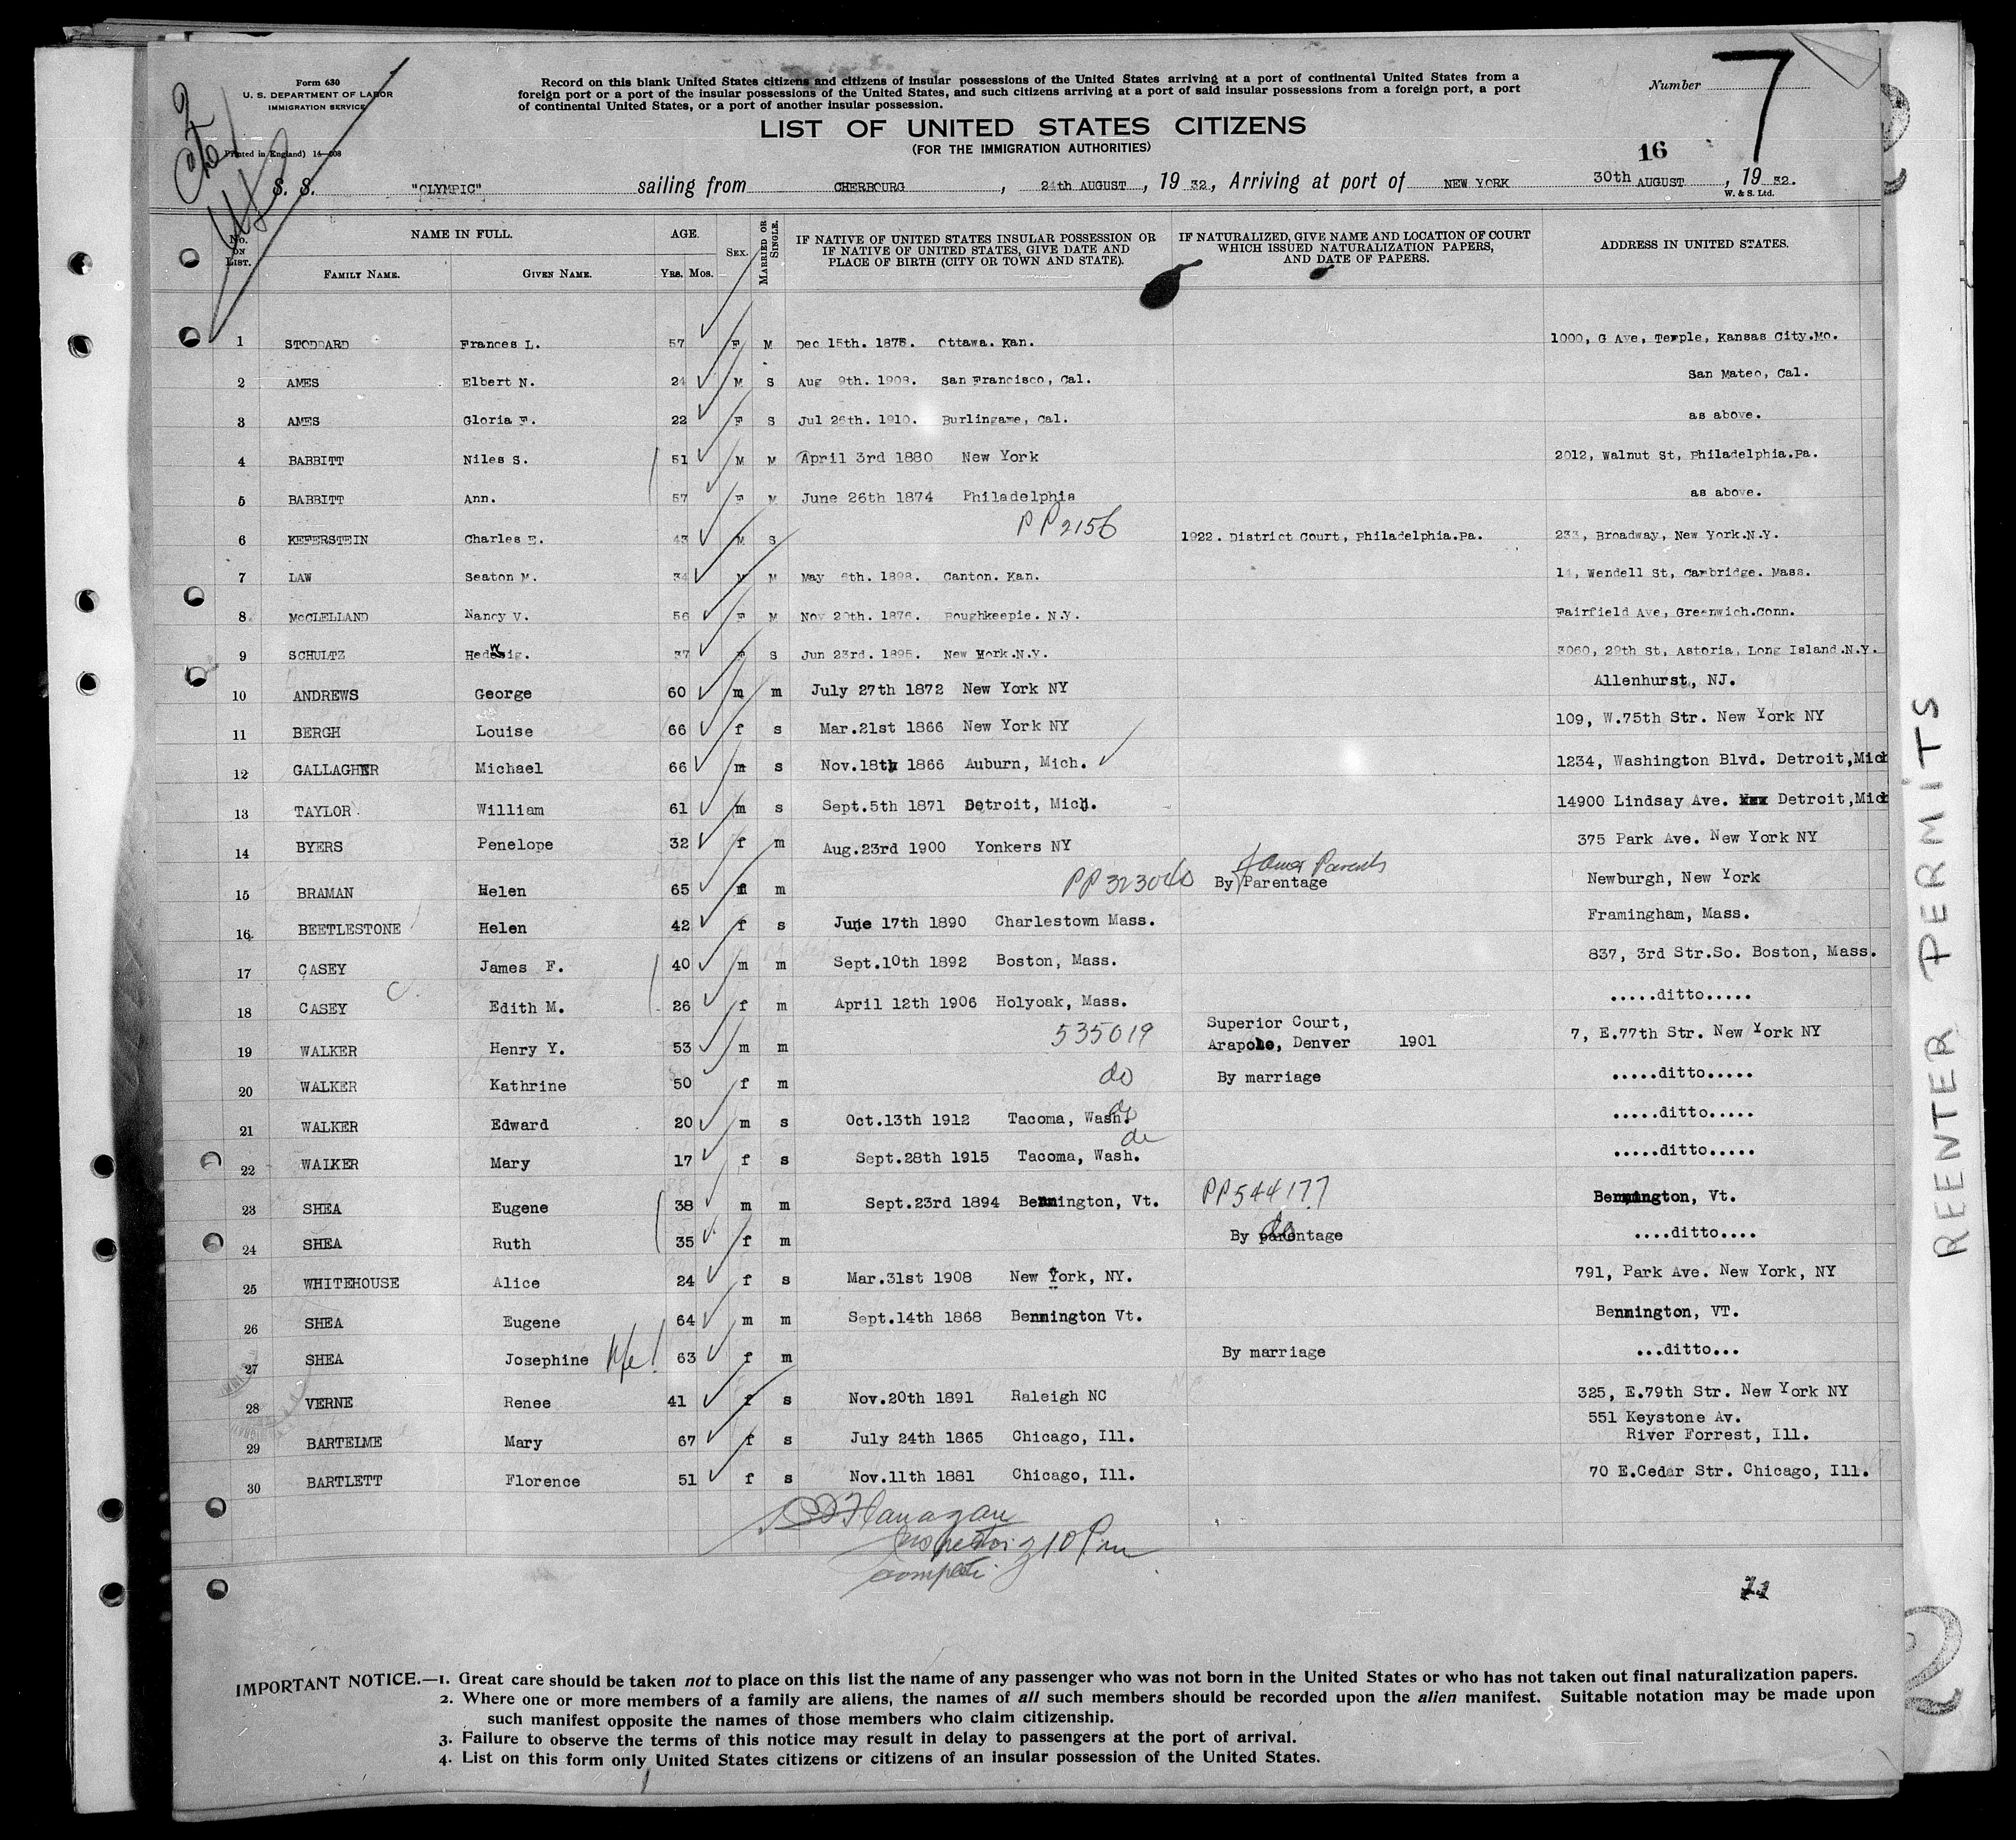 Form 630
U. S. DEPARTMENT OF LABOR
IMMIGRATION SERVICE
Printed in England) 14—608
Record on this blank United States citizens and citizens of insular possessions of the United States arriving at a port of continental United States from a
foreign port or a port of the insular possessions of the United States, and such citizens arriving at a port of said insular possessions from a foreign port, a port
of continental United States, or a port of another insular possession.
Number 7
LIST OF UNITED STATES CITIZENS
(FOR THE IMMIGRATION AUTHORITIES)
16
S. S. "OLYMPIC" sailing from CHERBOURG, 24th AUGUST, 19 32, Arriving at port of NEW YORK 30th AUGUST, 19 32.
W. & S. Ltd.
No. ON LIST. NAME IN FULL. FAMILY NAME. GIVEN NAME. AGE. YRS. MOS. SEX. MARRIED OR SINGLE. IF NATIVE OF UNITED STATES INSULAR POSSESSION OR IF NATIVE OF UNITED STATES, GIVE DATE AND PLACE OF BIRTH (CITY OR TOWN AND STATE). IF NATURALIZED, GIVE NAME AND LOCATION OF COURT WHICH ISSUED NATURALIZATION PAPERS, AND DATE OF PAPERS. ADDRESS IN UNITED STATES.
1 STODDARD Frances L. 57 F M Dec 15th. 1875. Ottawa. Kan. 1000, G Ave, Temple, Kansas City.Mo.
2 AMES Elbert N. 24 M S Aug 9th. 1908. San Francisco, Cal. San Mateo, Cal.
3 AMES Gloria F. 22 F S Jul 26th. 1910. Burlingame, Cal. as above.
4 BABBITT Niles S. 51 M M April 3rd 1880 New York 2012, Walnut St, Philadelphia.Pa.
5 BABBITT Ann. 57 F M June 26th 1874 Philadelphia as above.
6 KEFERSTEIN Charles E. 43 M S PP2156 1922. District Court, Philadelphia.Pa. 233, Broadway, New York.N.Y.
7 LAW Seaton M. 34 M M May 6th. 1898. Canton. Kan. 14, Wendell St, Cambridge. Mass.
8 McCLELLAND Nancy V. 56 F M Nov 20th. 1876. Poughkeepie. N.Y. Fairfield Ave, Greenwich.Conn.
9 SCHULTZ Hedwig. 37 F S Jun 23rd. 1895. New York.N.Y. 3060, 29th St, Astoria, Long Island.N.Y.
10 ANDREWS George 60 m m July 27th 1872 New York NY Allenhurst, NJ.
11 BERGH Louise 66 f s Mar.21st 1866 New York NY 109, W.75th Str. New York NY
12 GALLAGHER Michael 66 m s Nov.18th 1866 Auburn, Mich. 1234, Washington Blvd. Detroit,Mich
13 TAYLOR William 61 m s Sept.5th 1871 Detroit, Mich. 14900 Lindsay Ave. Detroit,Mich
14 BYERS Penelope 32 f m Aug.23rd 1900 Yonkers NY 375 Park Ave. New York NY
15 BRAMAN Helen 65 f m PP323040 By Parentage Newburgh, New York
16 BEETLESTONE Helen 42 f s June 17th 1890 Charlestown Mass. Framingham, Mass.
17 CASEY James F. 40 m m Sept.10th 1892 Boston, Mass. 837, 3rd Str.So. Boston, Mass.
18 CASEY Edith M. 26 f m April 12th 1906 Holyoak, Mass. .....ditto.....
19 WALKER Henry Y. 53 m m 535019 Superior Court, Arapohe, Denver 1901 7, E.77th Str. New York NY
20 WALKER Kathrine 50 f m do By marriage .....ditto.....
21 WALKER Edward 20 m s Oct.13th 1912 Tacoma, Wash. do .....ditto.....
22 WALKER Mary 17 f s Sept.28th 1915 Tacoma, Wash. do .....ditto.....
23 SHEA Eugene 38 m m Sept.23rd 1894 Bennington, Vt. PP544177 Bennington, Vt.
24 SHEA Ruth 35 f m By parentage do ....ditto....
25 WHITEHOUSE Alice 24 f s Mar.31st 1908 New York, NY. 791, Park Ave. New York, NY
26 SHEA Eugene 64 m m Sept.14th 1868 Bennington Vt. Bennington, VT.
27 SHEA Josephine 63 f m By marriage ...ditto...
28 VERNE Renee 41 f s Nov.20th 1891 Raleigh NC 325, E.79th Str. New York NY
29 BARTELME Mary 67 f s July 24th 1865 Chicago, Ill. 551 Keystone Av. River Forrest, Ill.
30 BARTLETT Florence 51 f s Nov.11th 1881 Chicago, Ill. 70 E.Cedar Str. Chicago, Ill.
Flanagan
Inspector
11
REENTER PERMITS
2
IMPORTANT NOTICE.—1. Great care should be taken not to place on this list the name of any passenger who was not born in the United States or who has not taken out final naturalization papers.
2. Where one or more members of a family are aliens, the names of all such members should be recorded upon the alien manifest. Suitable notation may be made upon
such manifest opposite the names of those members who claim citizenship.
3. Failure to observe the terms of this notice may result in delay to passengers at the port of arrival.
4. List on this form only United States citizens or citizens of an insular possession of the United States.